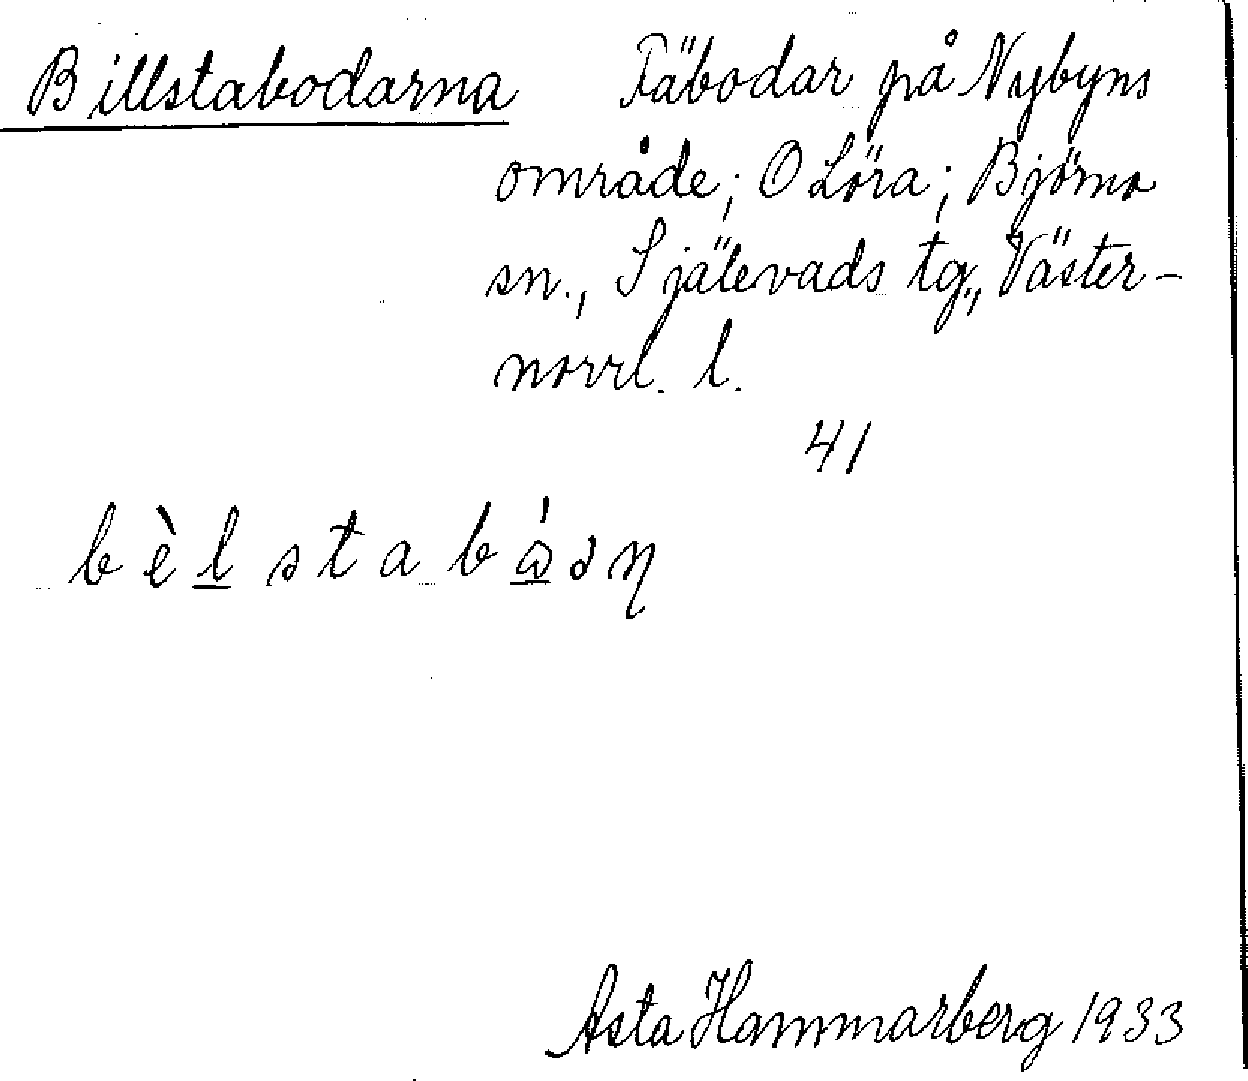 Billstabodarna Fäbodar på Nybyns
område; O Löra; Björna
sn., Själevads tg., Väster-
norrl. l.
41
bèlstabά̲əη
Asta Hammarberg 1933